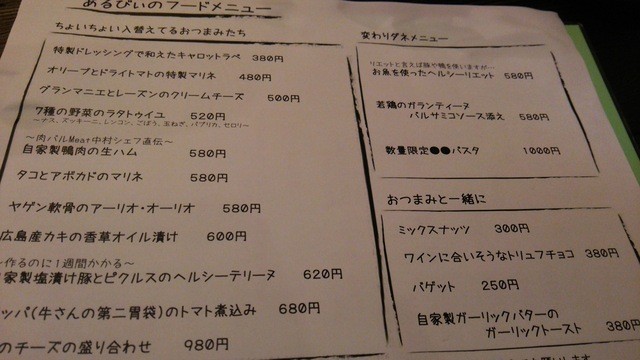 あるびぃのフードメニュー
ちょいちょい入替えてるおつまみたち
特製ドレッシングで和えたキャロットラペ 380円
オリーブとドライトマトの特製マリネ 480円
グランマニエとレーズンのクリームチーズ 500円
7種の野菜のラタトゥイユ 520円
～ナス、ズッキーニ、レンコン、ごぼう、玉ねぎ、パプリカ、セロリ～
～肉バルMeat中村シェフ直伝～
自家製鴨肉の生ハム 580円
タコとアボカドのマリネ 580円
ヤゲン軟骨のアーリオ・オーリオ 580円
広島産カキの香草オイル漬け 600円
～作るのに1週間かかる～
家製塩漬け豚とピクルスのヘルシーテリーヌ 620円
ッパ(牛さんの第二胃袋)のトマト煮込み 680円
のチーズの盛り合わせ 980円
変わりダネメニュー
リエットと言えば豚や鴨を使いますが…
お魚を使ったヘルシーリエット 580円
若鶏のガランティーヌ
バルサミコソース添え 580円
数量限定●●パスタ 1000円
おつまみと一緒に
ミックスナッツ 300円
ワインに合いそうなトリュフチョコ 380円
バゲット 250円
自家製ガーリックバターの
ガーリックトースト 380円